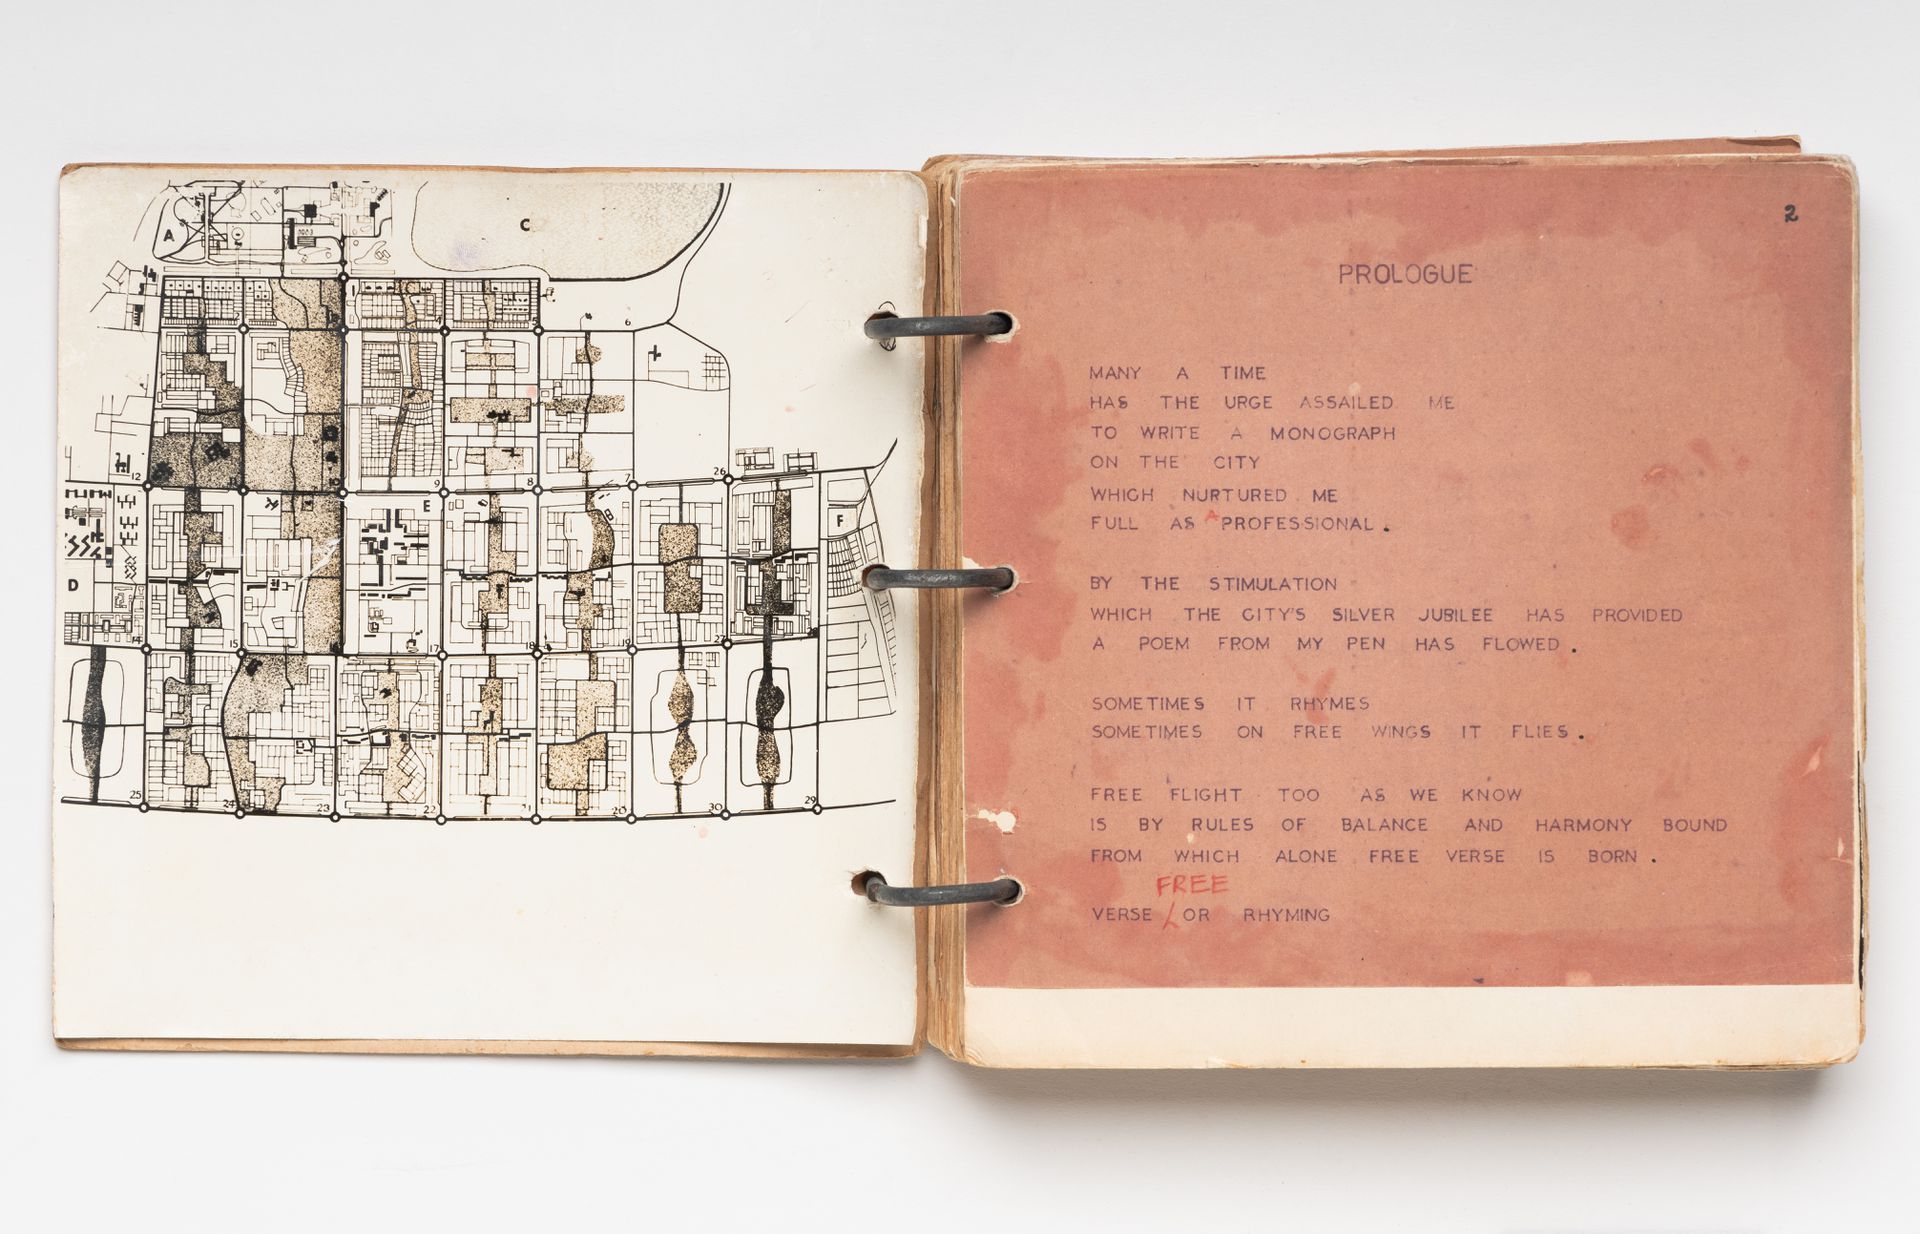 A
C
1
4
5
6
12
11
10
9
8
7
26
E
F
D
14
15
17
18
19
27
25
24
23
22
21
20
30
29
2
PROLOGUE
MANY A TIME
HAS THE URGE ASSAILED ME
TO WRITE A MONOGRAPH
ON THE CITY
WHICH NURTURED ME
FULL AS A PROFESSIONAL.
BY THE STIMULATION
WHICH THE CITY'S SILVER JUBILEE HAS PROVIDED
A POEM FROM MY PEN HAS FLOWED.
SOMETIMES IT RHYMES
SOMETIMES ON FREE WINGS IT FLIES.
FREE FLIGHT TOO AS WE KNOW
IS BY RULES OF BALANCE AND HARMONY BOUND
FROM WHICH ALONE FREE VERSE IS BORN.
FREE
VERSE OR RHYMING